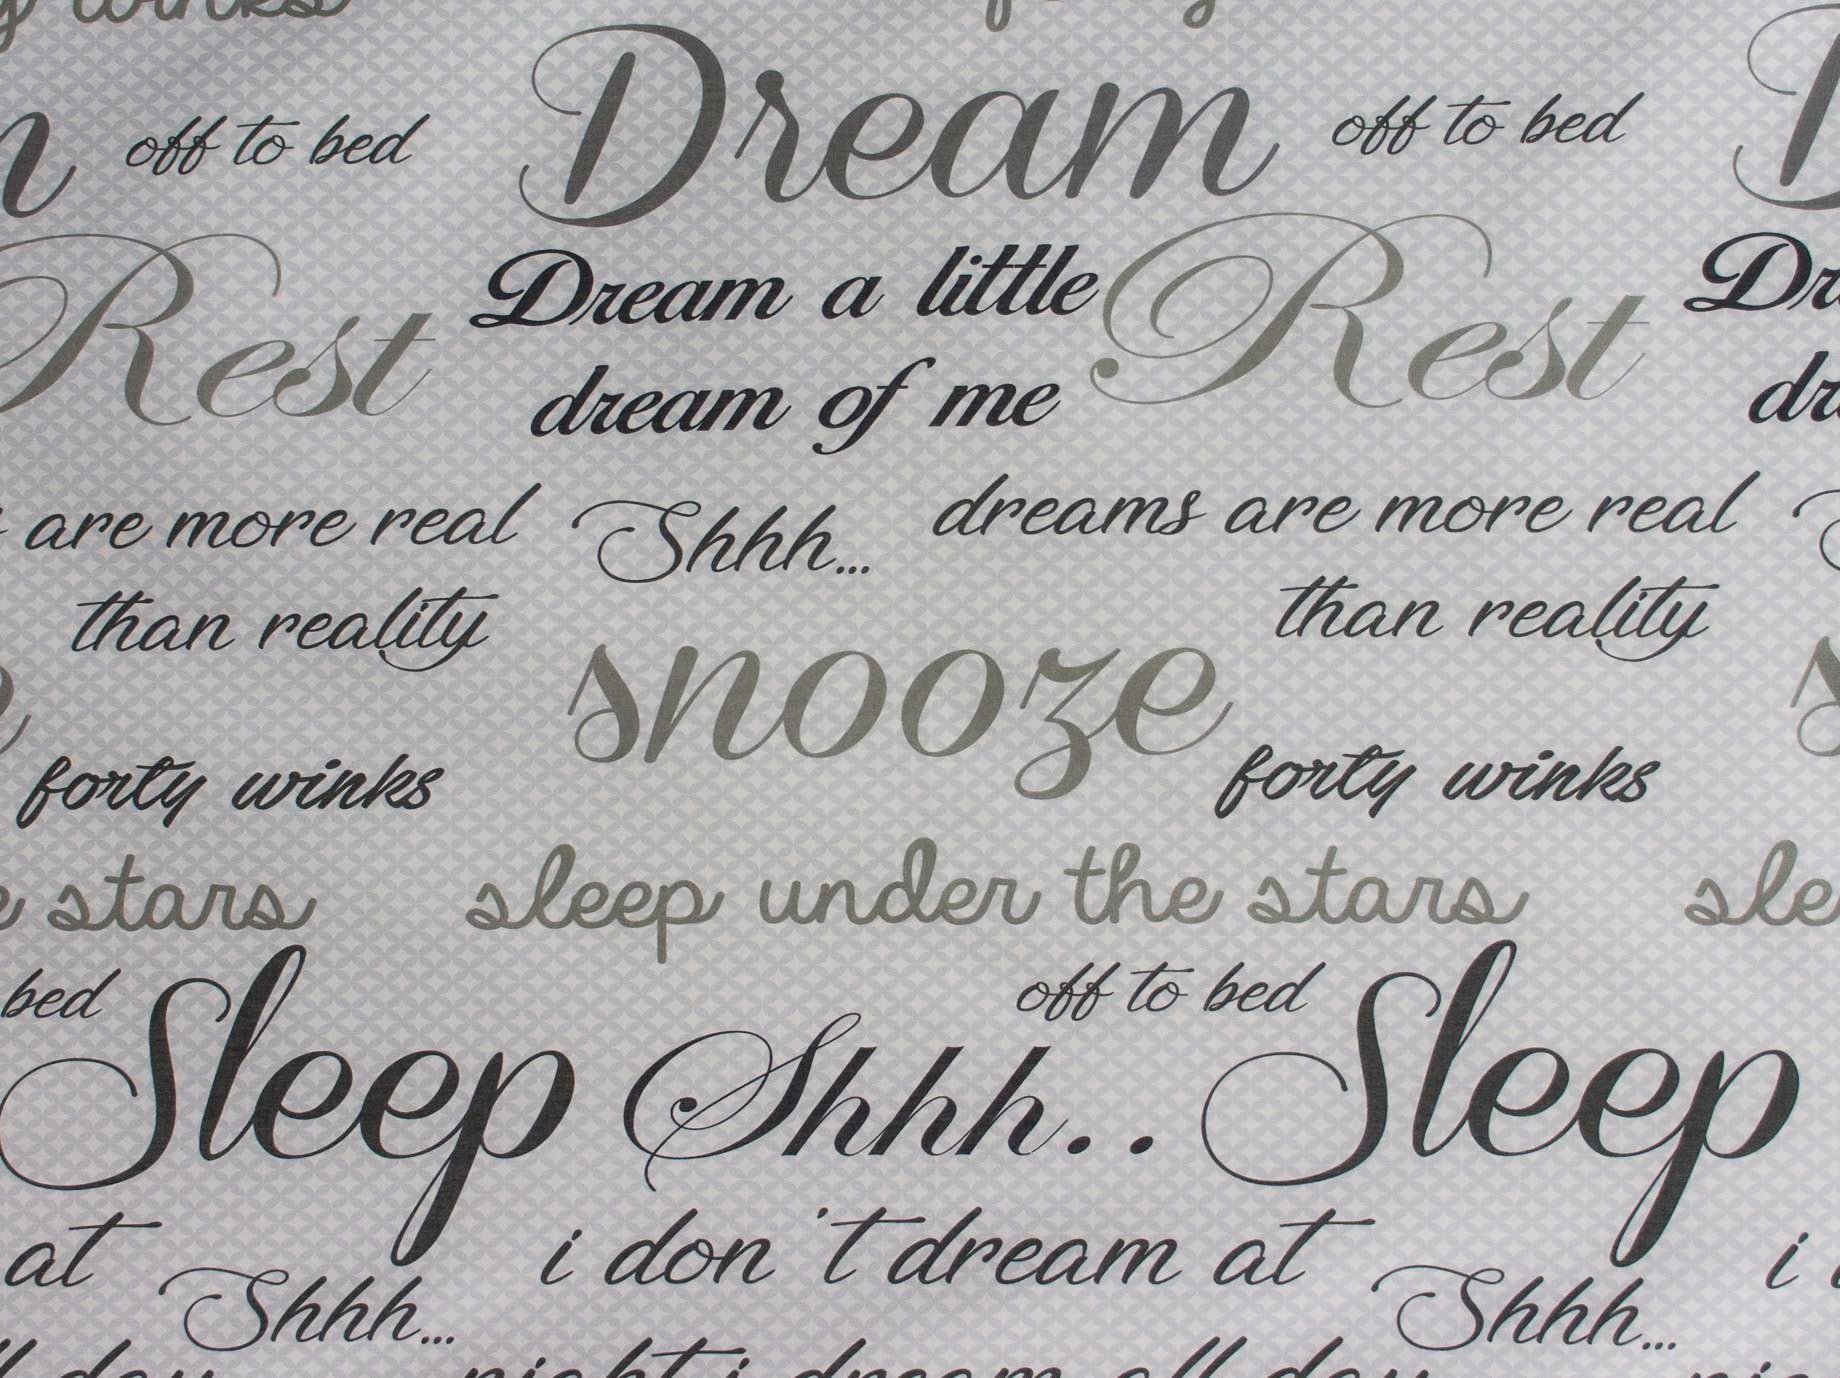 winks
Dream
off to bed
off to bed
Rest
Dream a little
Rest
dream of me
are more real
Shhh...
dreams are more real
than reality
than reality
snooze
forty winks
forty winks
e stars
sleep under the stars
sle
bed
off to bed
Sleep
Shhh..
Sleep
at
i don't dream at
i
Shhh...
Shhh...
ll day
night i dream all day